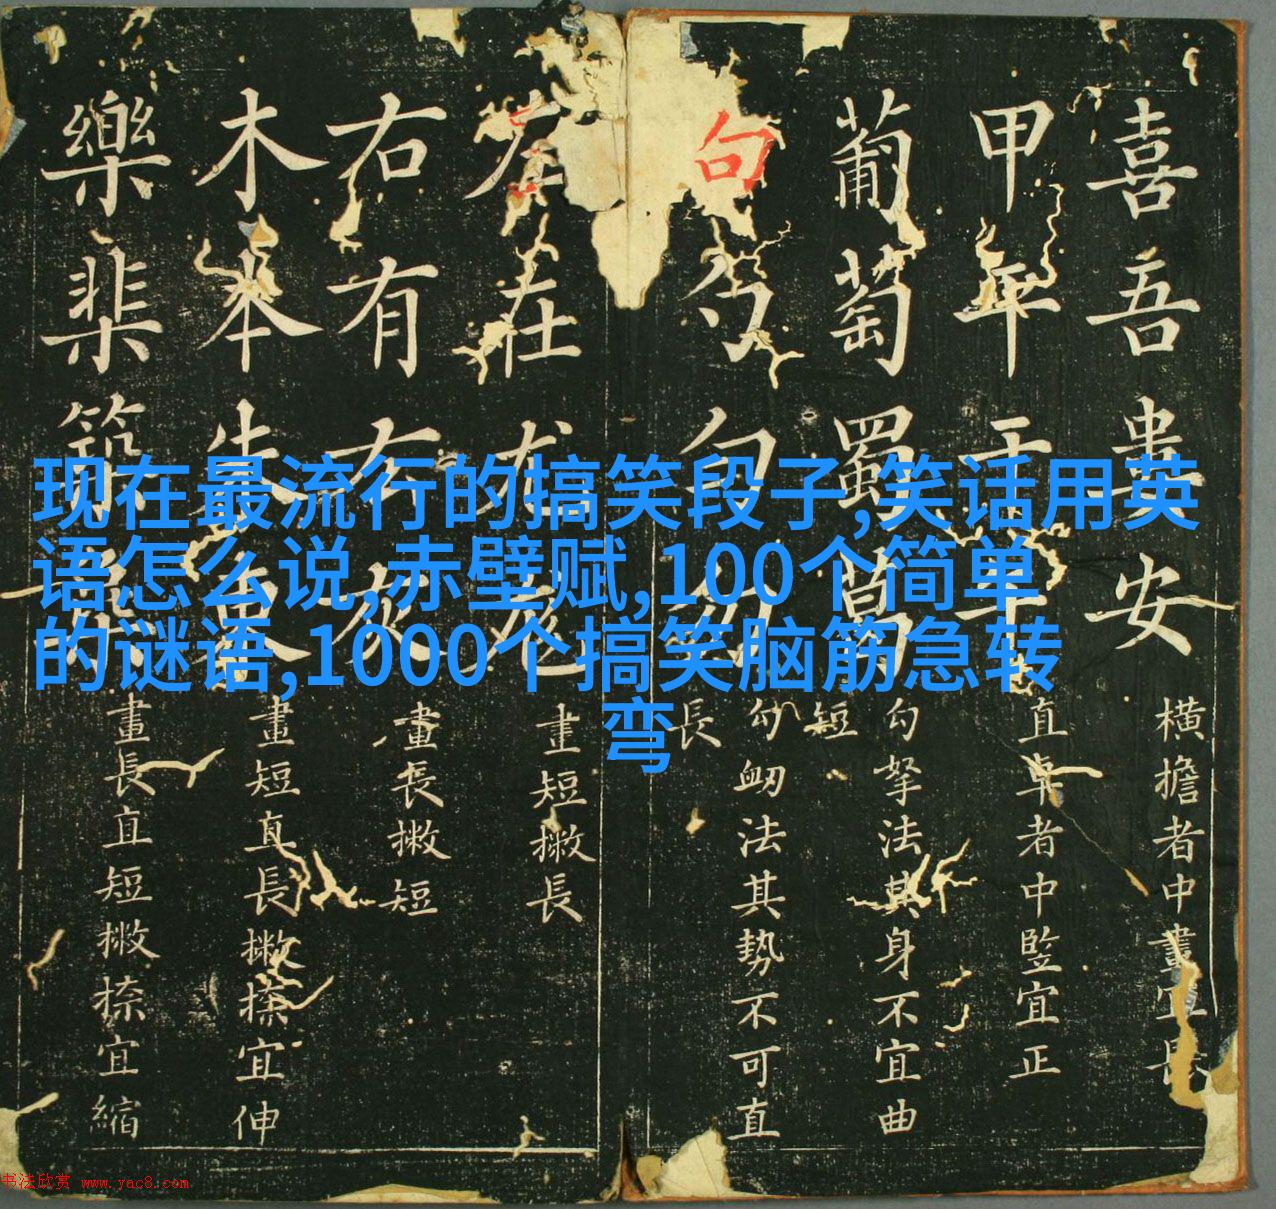 现在最流行的搞笑段子,笑话用英
语怎么说,赤壁赋,100个简单
的谜语,1000个搞笑脑筋急转
弯
喜吾安
橫擔者中畫宜長
甲平干午
直卓者中竪宜正
葡萄蜀葛
勾拏法其身不宜曲
短
句勺勻勿
勾衂法其勢不可直
長
左在尤尨
畫短撇長
右有友灰
畫長撇短
木本朱東
畫短直長撇捺宜伸
樂棐築
畫長直短撇捺宜縮
书法欣赏 www.yac8.com